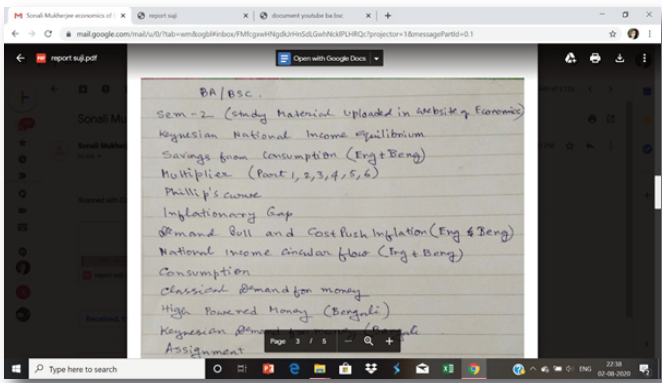 Sonali Mukherjee economics of
report suji
document youtube ba bsc
mail.google.com/mail/u/0/?tab=wm&ogbl#inbox/FMfcgxwHNgdkJrHnSdLGwhNcklPLHRQc?projector=1&messagePartId=0.1
report suji.pdf
Open with Google Docs
BA/BSC.
Sem-2 (Study Material uploaded in website of Economics)
Keynesian National Income equilibrium
Savings from Consumption (Eng + Beng)
Multiplier (Part 1, 2, 3, 4, 5, 6)
Phillip's curve
Inflationary Gap
Demand Pull and Cost Push Inflation (Eng & Beng)
National income circular flow (Eng + Beng)
Consumption
Classical Demand for money
High Powered Money (Bengali)
Keynesian Demand for money
Assignment
Page 3 / 5
Sonali Mu
Sonali Mukher
Scanned with C
report suji
Received,
Type here to search
ENG
22:38
02-08-2020